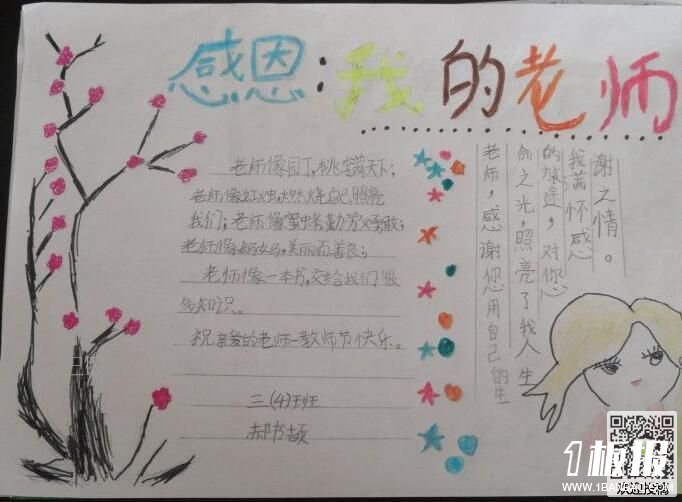 感恩:我的老师
老师像园丁,桃李满天下;
老师像红烛,燃烧自己照亮
我们;老师像蜜蜂勤劳勇敢;
老师像妈妈,美丽而善良;
老师像一本书,交给我们很
多知识。
祝亲爱的老师—教师节快乐。
三(4)班
郝书颉
老师,感谢您用自己的生
命之光,照亮了我人生
的旅途,对您
我满怀感
谢之情。
1板报
WWW.1BANBAO.COM